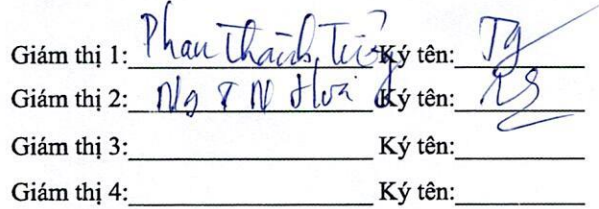 Giám thị 1: Phan Thành Ký tên:
Giám thị 2: Ng T N Hoà Ký tên:
Giám thị 3: Ký tên:
Giám thị 4: Ký tên: